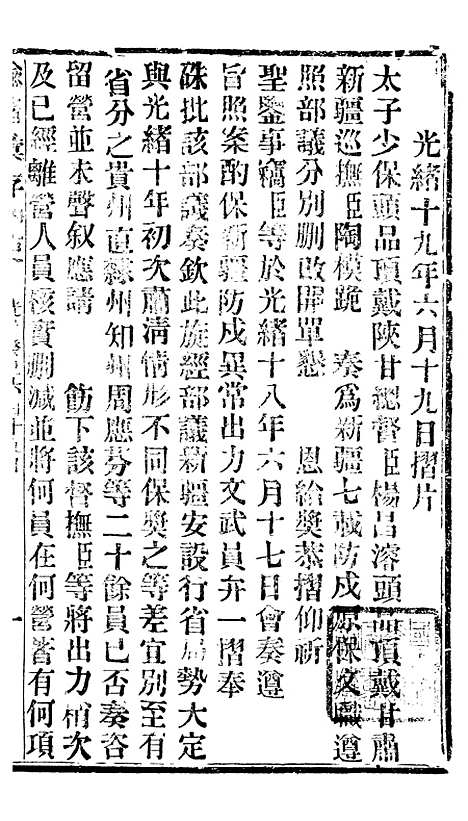 光緒十九年六月十九日摺片
太子少保頭品頂戴陝甘總督臣楊昌濬頭品頂戴甘肅
新疆巡撫臣陶模跪　奏爲新疆七載防戍原保文職遵
照部議分別刪改開單懇　恩給獎恭摺仰祈
聖鑒事竊臣等於光緒十八年六月十七日會奏遵
旨照案酌保新疆防戍異常出力文武員弁一摺奉
硃批該部議奏欽此旋經部議新疆安設行省局勢大定
與光緒十年初次肅清情形不同保獎之等差宜別至有
省分之貴州直隸州知州周應芬等二十餘員已否奏咨
留營並未聲叙應請　飭下該督撫臣等將出力稍次
及已經離營人員核實刪減並將何員在何營皆有何項
一